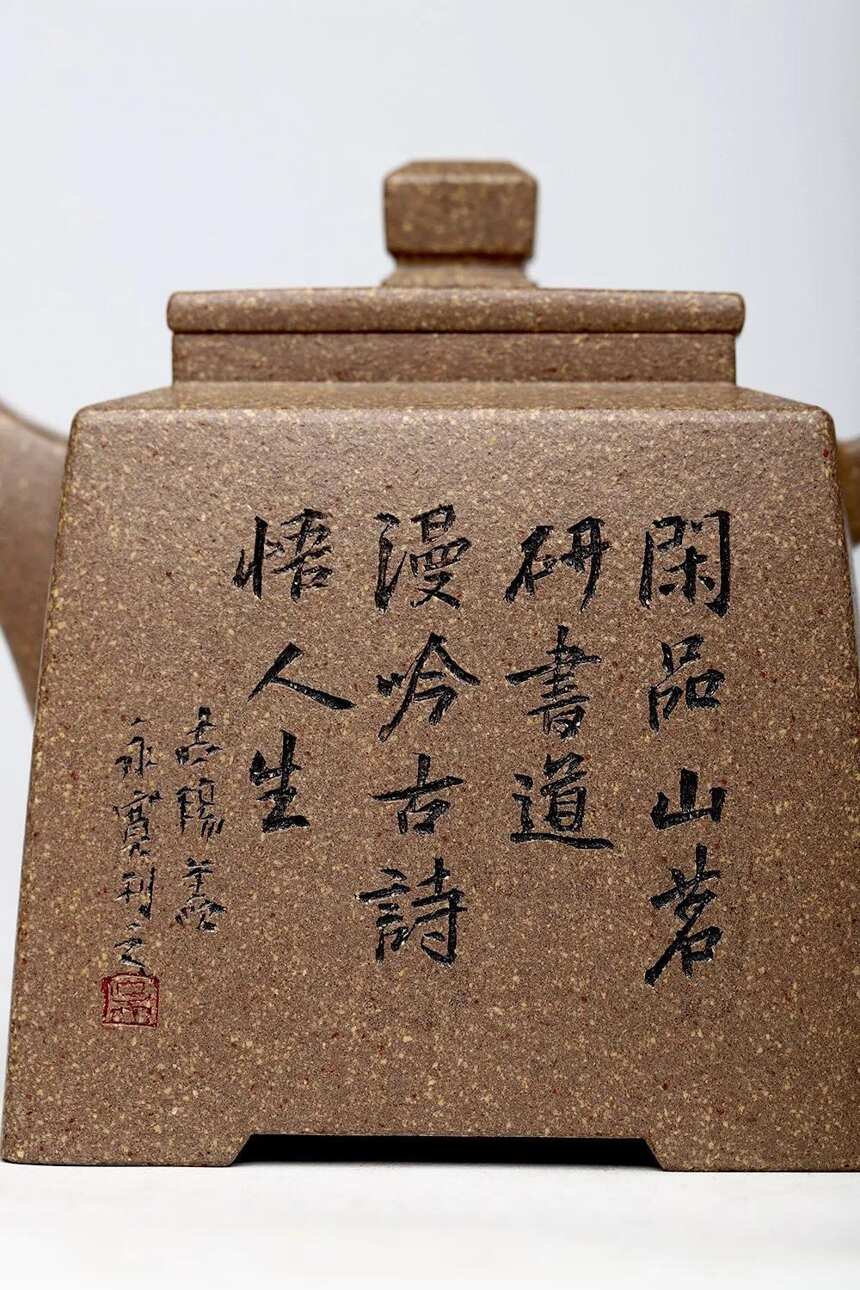 閑品山茗
研書道
漫吟古詩
悟人生
永寶刊之